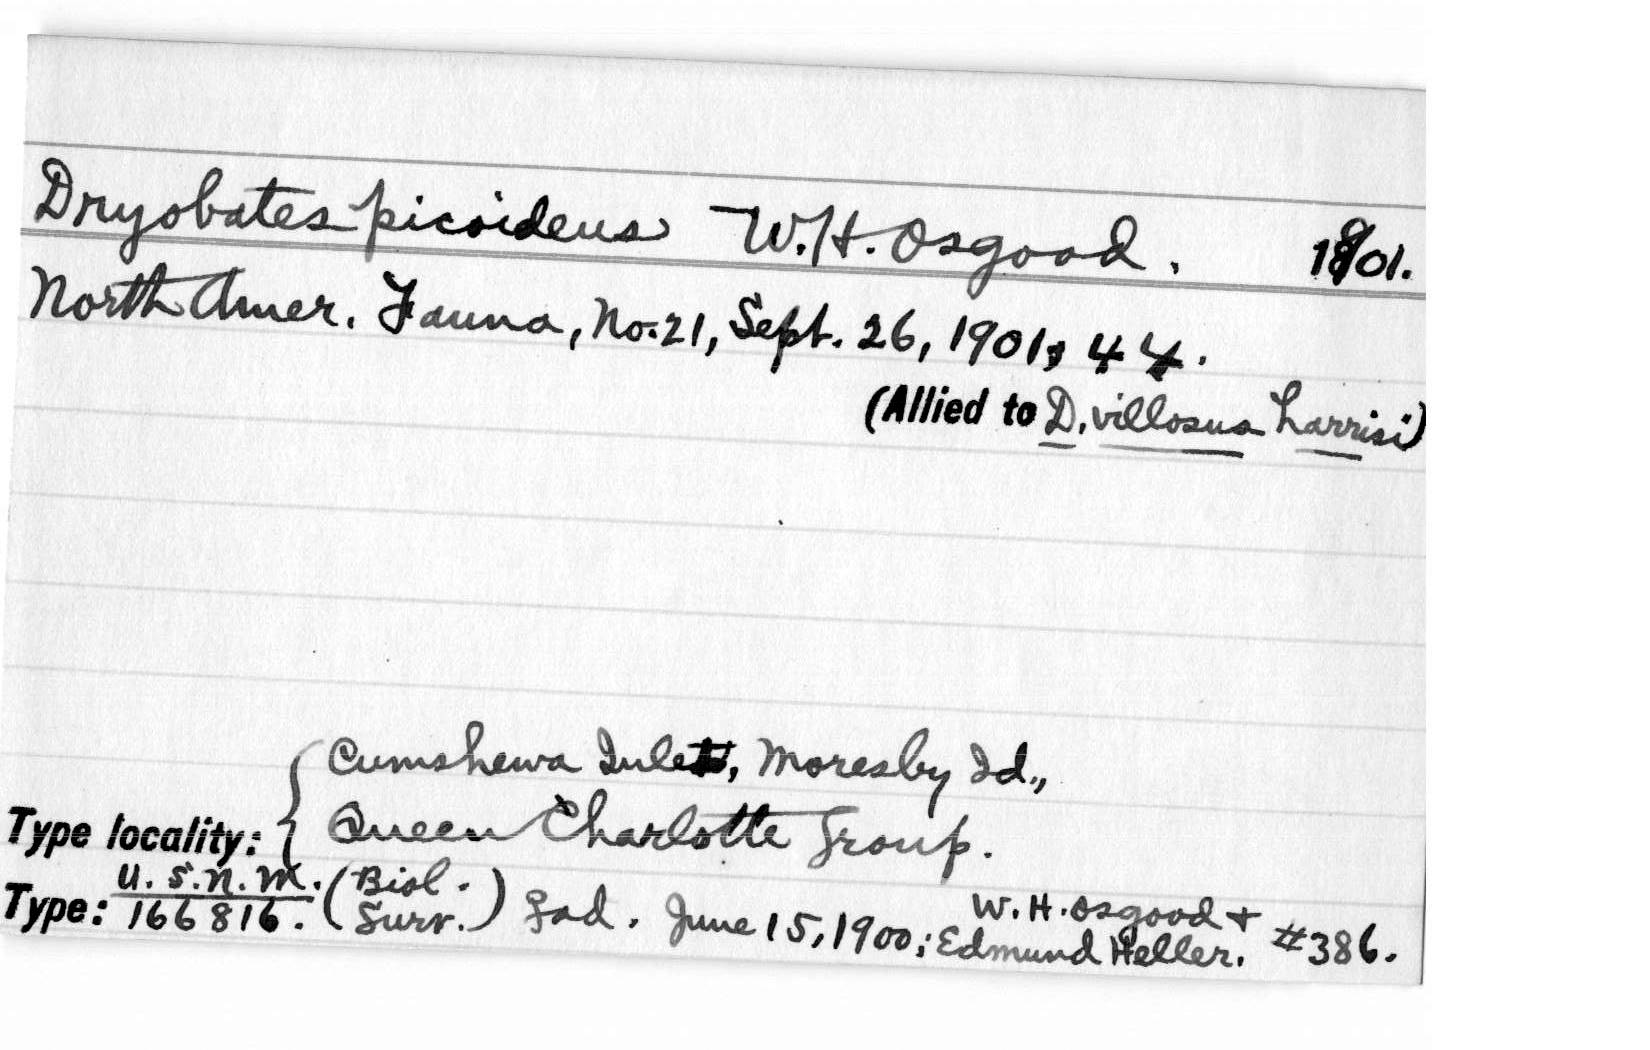 Dryobates picoideus W.H. Osgood. 1901.
North Amer. Fauna, No. 21, Sept. 26, 1901, 44.
(Allied to D. villosus harrisi)
Cumshewa Inlet, Moresby Id.,
Type locality: { Queen Charlotte Group.
U.S.N.M. (Biol. W.H. Osgood +
Type: 166816. Surv.) ad. June 15, 1900; Edmund Heller. #386.